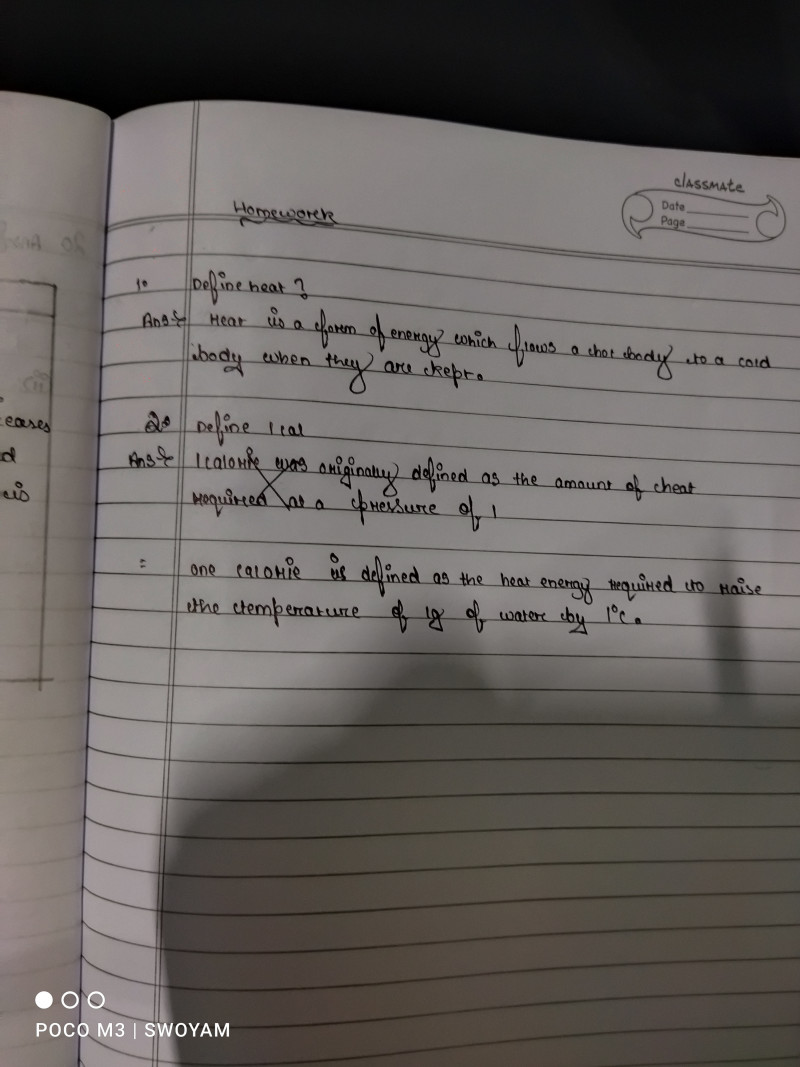 classmate
Date
Page
Homework
1. Define heat?
Ans:- Heat is a form of energy which flows a hot body to a cold
body when they are kept.
2. Define 1 cal
Ans:- 1 calorie was originally defined as the amount of heat
required at a pressure of 1
= one calorie is defined as the heat energy required to raise
the temperature of 1g of water by 1°c.
20 Ans
eases
d
is
POCO M3 | SWOYAM